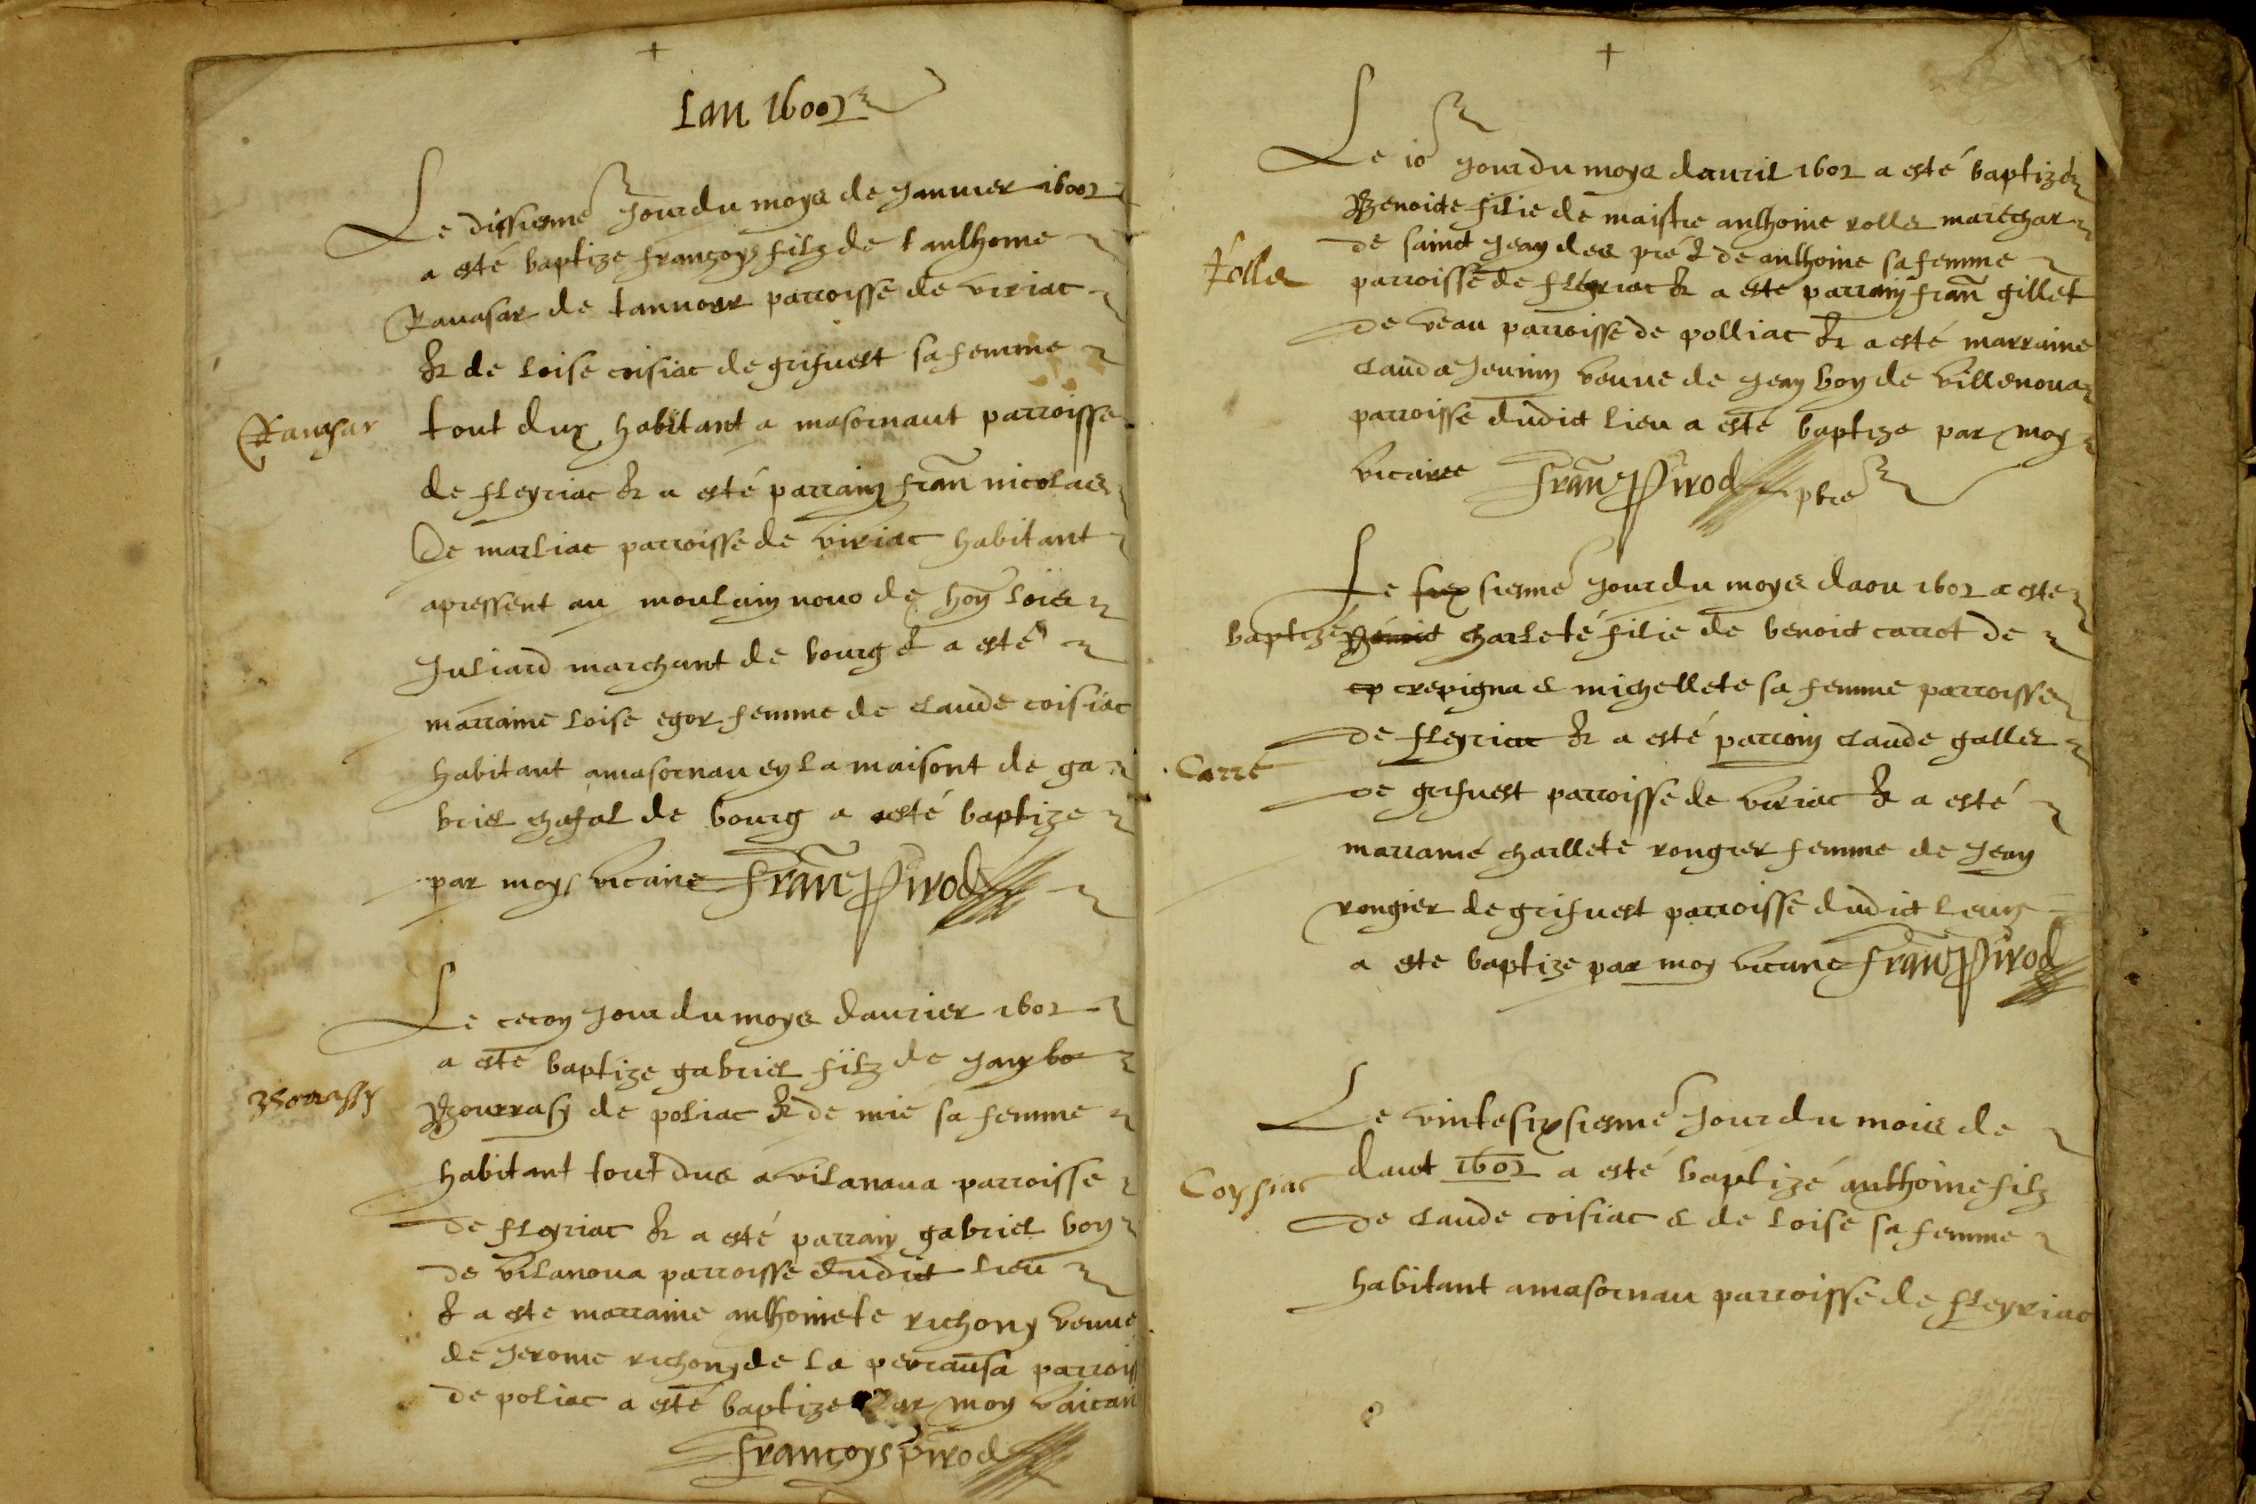 Lan 16002
Le dissiesme Jour du moys de Januier 16002
a esté baptize françoys filz de tanthome
Rauasar de tannoer parroisse de viriac
& de loise coisiac de grifuest sa femme
Rauasar
tout dux habitant a masornaut parroisse
de fleyriac & a esté parrain fran nicolaes
De marliac parroisse de viriac habitant
apressent au moulain nouo de hon lois
Juliard marchant de bourg & a esté
marraine loise egor femme de claude coisiac
habitant amasornau en la maisont de ga
briel chafal de bourg a esté baptize
par moy vicaire fran Pirod
Le cecon Jour du moys daurier 1602
a este baptize gabriel filz de Jan bo
Borrassy
Bourrasy de poliac & de mie sa femme
habitant tout dus a vilanaua parroisse
de fleyriac & a esté parrain gabriel boy
de vilanoua parroisse dudict lieu
& a este marraine anthoinete richony veuue
de Jerome richony de la perrausa parrois
de poliac a esté baptize par moy vaicari
françoys Pirod
Le 10 Jour du moys dauril 1602 a esté baptize
Benoicte filie de maistre anthoine rolles marechar
Rolles
de sainct Jean des pré & de anthoine sa femme
parroisse de fleyriac & a este parrain fran gillet
de veau parroisse de polliac & a esté marraine
claude Jeunin veuue de Jean boy de villenoua
parroisse dudict lieu a este baptize par moy
vicaire fran Pirod ptre
Le siex siesme Jour du moys daou 1602 a este
baptizé Benoict charleté filie de benoict carrot de
cp crepigna & michellete sa femme parroisse
de fleyriac & a esté parroin claude galles
Carré
de grifuest parroisse de viriac & a esté
marramé charllete rongier femme de Jean
rongier de grifuest parroisse dudict leuy
a este baptize par moy vicaire fran Pirod
Le vintesixsiesme Jour du mois de
daut 1602 a esté baptizé anthoine filz
Coysiac
de claude coisiac & de loise sa femme
habitant amasornau parroisse de fleyriac